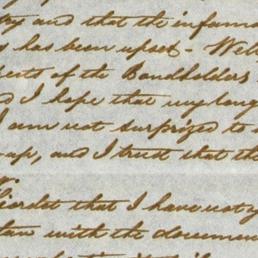 and that the infamo
has been upset - Well
of the Bondholders
I hope that my long
I am not surprized to
up, and I trust that the
that I have not y
with the documen